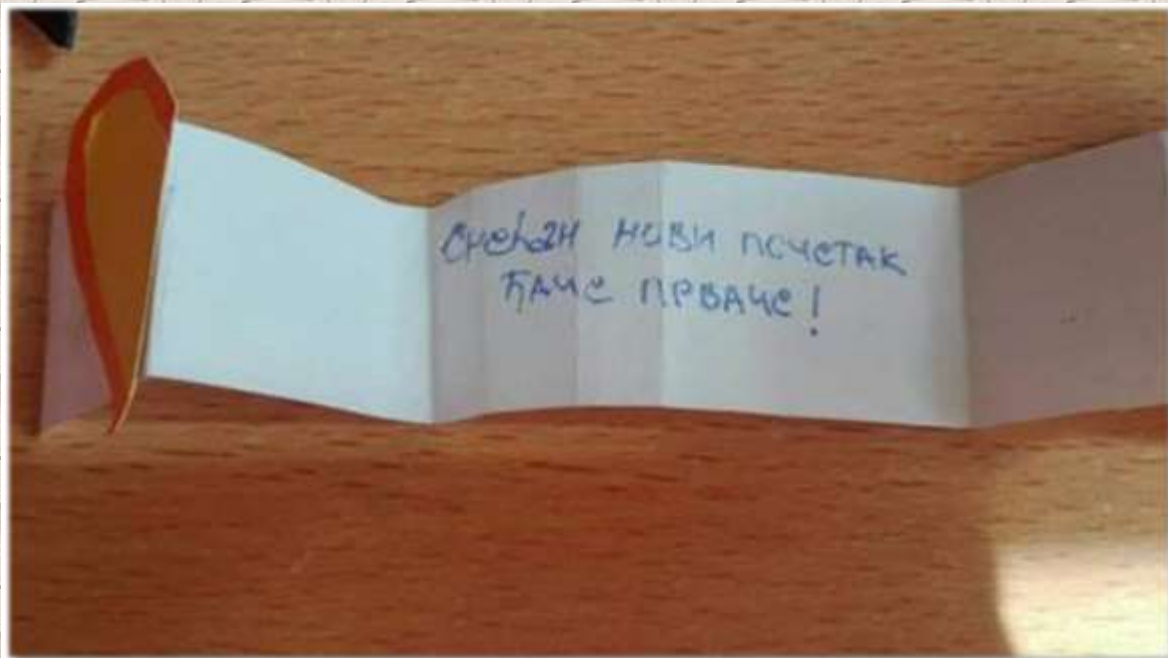 СРЕЋАН НОВИ ПОЧЕТАК
ЂАЧЕ ПРВАЧЕ!